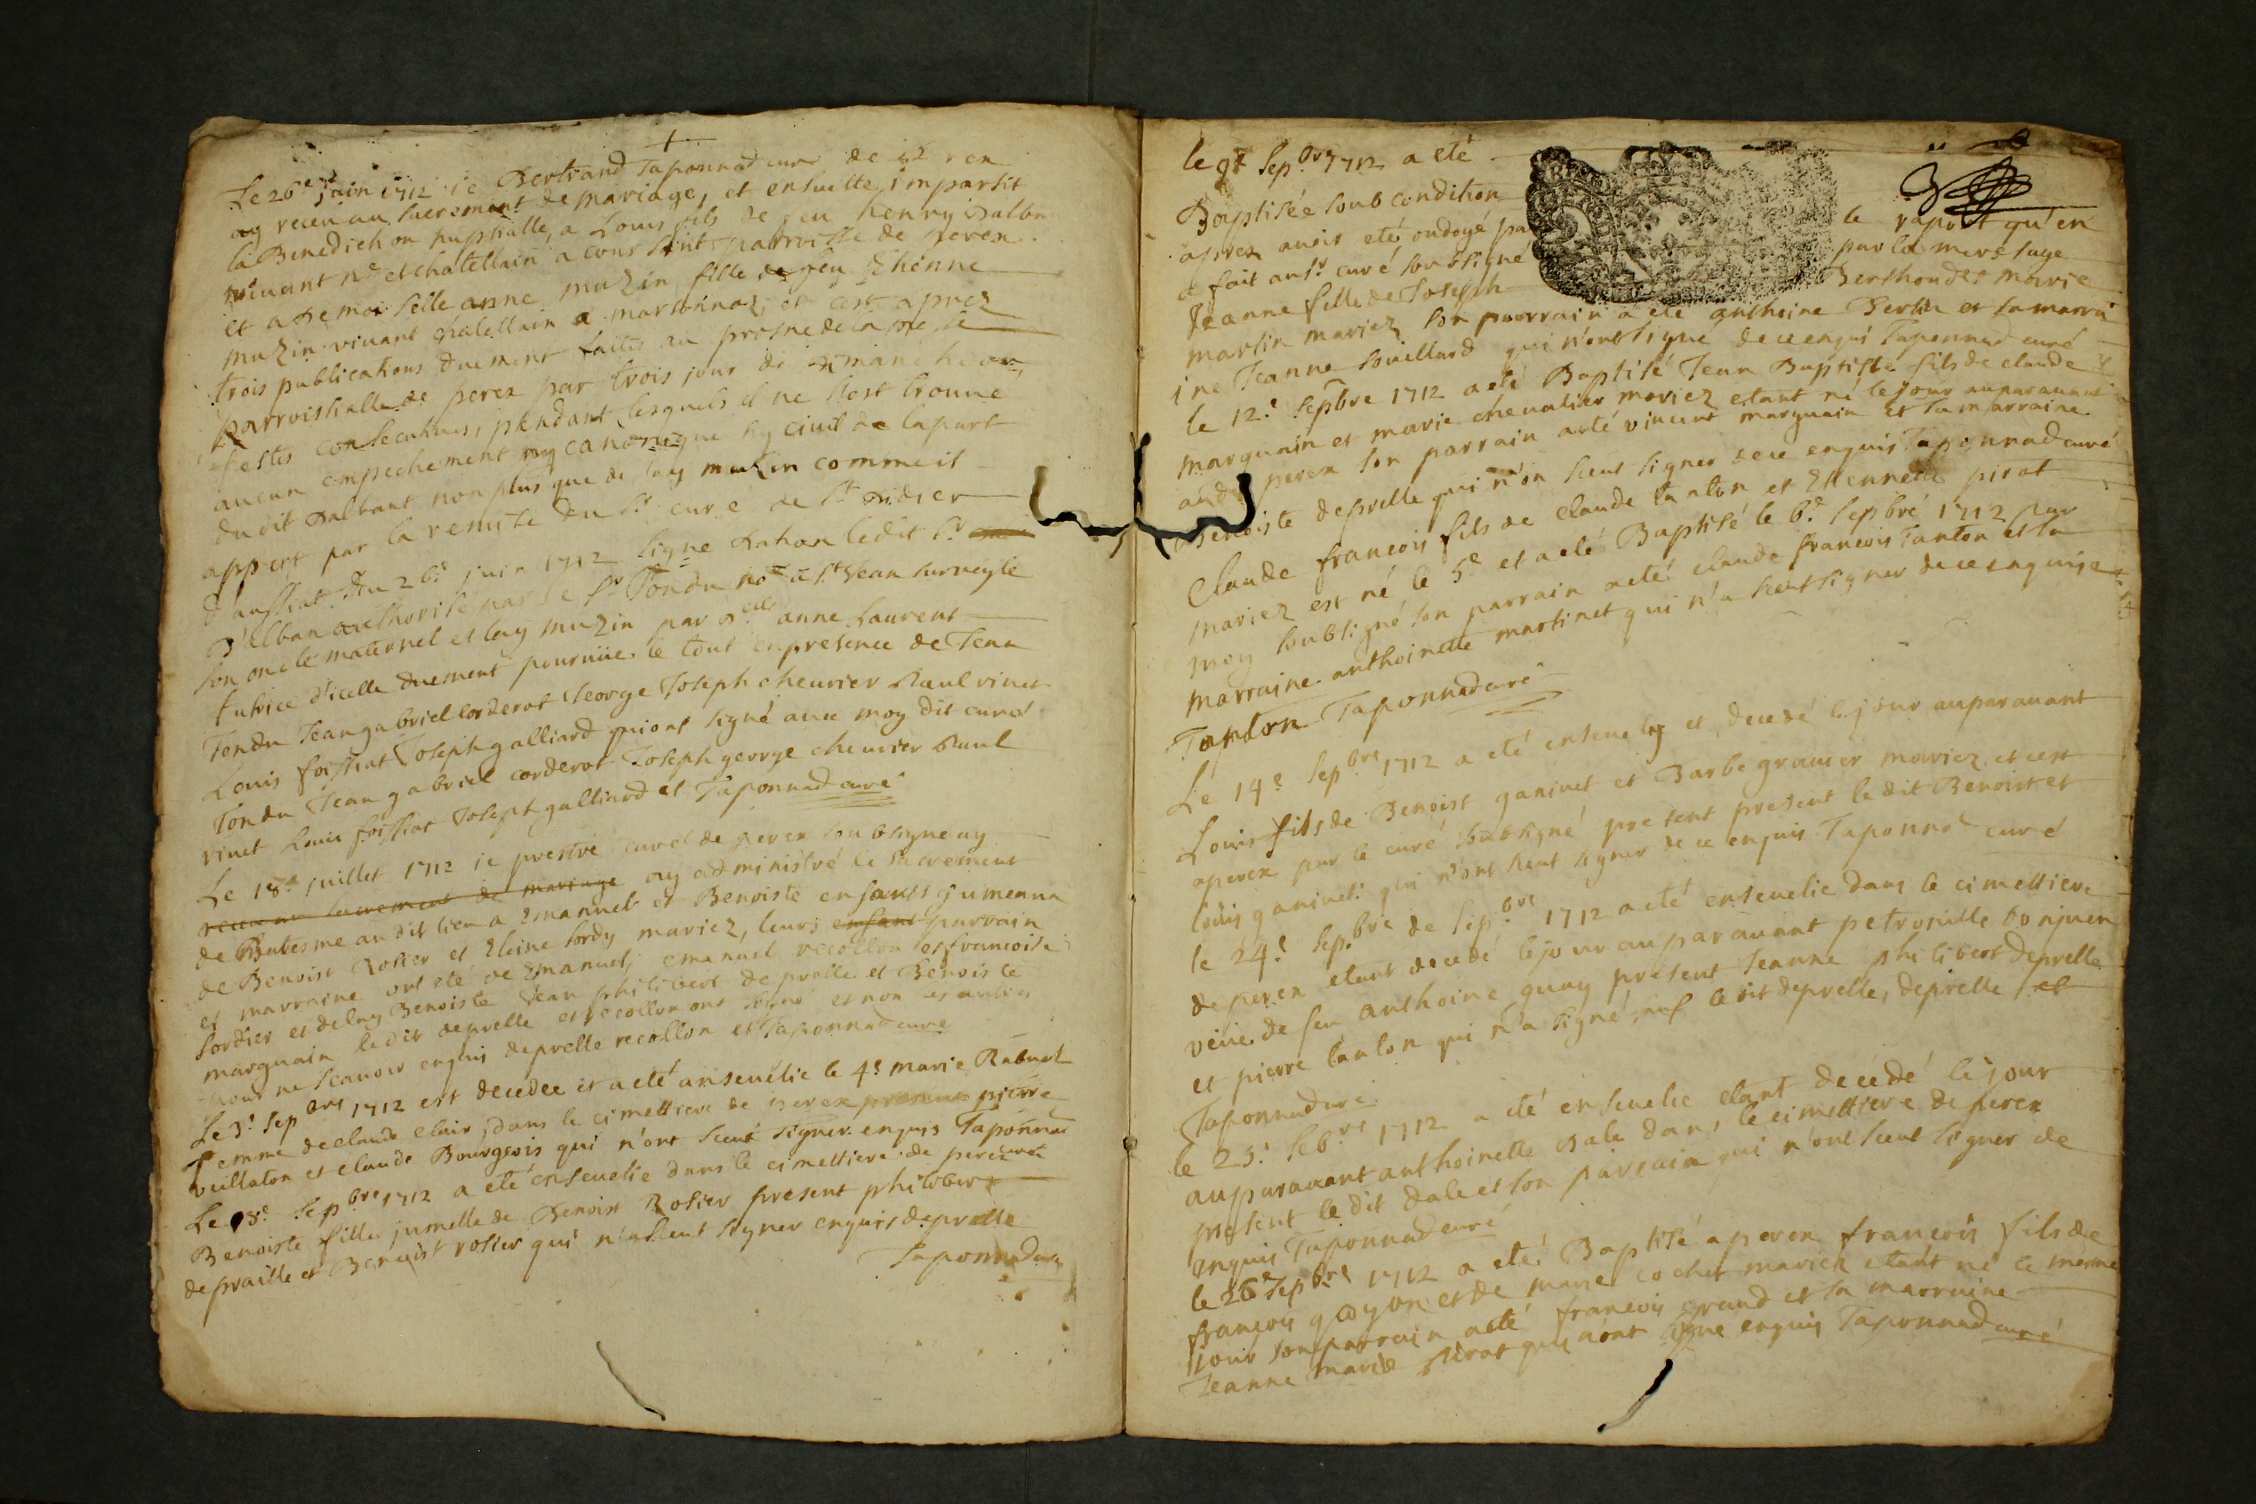 Le 26e juin 1712 ie Bertrand Taponnad curé de perex
ay receu au sacrement de mariage, et ensuitte impartit
la Benediction nuptialle, a Louis fils de feu henry Dalban
vivant nre et chatellain a parroisse de perex
et a Demoiselle anne muzin fille de feu Ethienne
muzin vivant chatellain a marsonnaz, et cest aprez
trois publications duement faites au prosne de la messe
parroissialle de perex par trois jour de dimanche ou
festes consecutives, pendant lesquels il ne s'est trouvé
aucun empechement ny canonique ny civil de la part
du dit Dalbant non plus que de lay muzin comme il
appert par la remise du Sr curé de St Didier
d'aussiat du 26e juin 1712 signé Lahan ledit Sr
D'alban authorisé par le Sr Tondu nore a St Jean surveyle
son oncle maternel et lay muzin par delle anne Laurent
tutrice d'icelle duement pourvüe, le tout en presence de Jean
Tondu Jean gabriel corderot george Joseph chevrier Raul vinet
Louis foissiat Joseph galliard qui ont signé avec moy dit curé
Tondu Jean gabriel corderot Joseph george chevrier Raul
vinet Louis foissiat Joseph galliard et Taponnad curé
Le 18e juillet 1712 ie prestre curé de perex soubsigne ay
receu au sacrement de mariage ay administré le sacrement
de Batesme au dit lieu a Emanuel et Benoiste enfants jumeaux
de Benoist Rosier et Eleine sordy mariez, leurs enfant parrain
et marraine ont eté de Emanuel, emanuel recollon et francoise
sordier et delay Benoiste Jean philibert deprelle et Benoiste
marguain ledit deprelle et recollon ont signé et non les autres
pour ne scavoir enquis deprelle recollon et Taponnad curé
Le 3e Sepbre 1712 est decedee et a eté ansevélie le 4e marie Rabuel
femme de claude clair, dans le cimettiere de perex presents pierre
vuillaton et claude Bourgeois qui n'ont sceut signer enquis Taponnad
curé
Le 8e Sepbre 1712 a eté ensevelie dans le cimettiere de perex
Benoiste fille jumelle de Benoist Rosier present philibert
depraille et Benoist rosier qui n'a sceut signer enquis deprelle
Taponnad curé
le 9e Sepbre 1712 a eté
Baptisée soub condition
aprez avoir eté ondoyé par le raport qu'en
a fait au Sr curé soussigné par la mere sage
Jeanne fille de Joseph Berthoud et marie
martin mariez son parrain a eté anthoine Bertin et sa marra
ine Jeanne Souillard qui n'ont signé de ce enqui Taponnad curé
le 12e Sepbre 1712 a eté Baptisé Jean Baptiste fils de claude
marguain et marie chevalier mariez etant né le jour auparavant
audt perex son parrain a eté vincent marguain et sa marraine
Benoiste deprelle qui n'on sceut signer de ce enquis Taponnad curé
Claude francois fils de claude tanton et Ethennette pirat
mariez est né le 5e et a eté Baptisé le 6e Sepbre 1712 par
moy soubsigné son parrain a eté claude francois Tanton et sa
marraine anthoinette martinet qui n'a sceut signer de ce enquise
Tanton Taponnad curé
Le 14e Sepbre 1712 a eté ensevely et decedé le jour auparavant
Louis fils de Benoist ganivet et Barbe gravier mariez et cest
a perex par le curé soubsigné present present le dit Benoist et
louis ganivet qui n'ont sceut signer de ce enquis Taponnad curé
le 24e Sepbre de Sepbre 1712 a eté ensevelie dans le cimettiere
de perex etant decedé le jour auparavant petronille bonjuen
veüe de feu anthoine guay present Jeanne philibert deprelle
et pierre tanton qui n'a signé suf le dit deprelle, deprelle et
Taponnad curé
le 25e Sebre 1712 a eté ensevelie etant decédé le jour
auparavant anthoinette Dale dans le cimettiere de perex
present le dit dale et son parrain qui n'ont sceut signer de
enquis Taponnad curé
le 26e Sepbre 1712 a eté Baptisé a perex francois fils de
francois goyon et de marie cochet mariez etant né le mesme
jour son parrain a eté francois grand et sa marraine
Jeanne marie qui n'ont signe enquis Taponnad curé